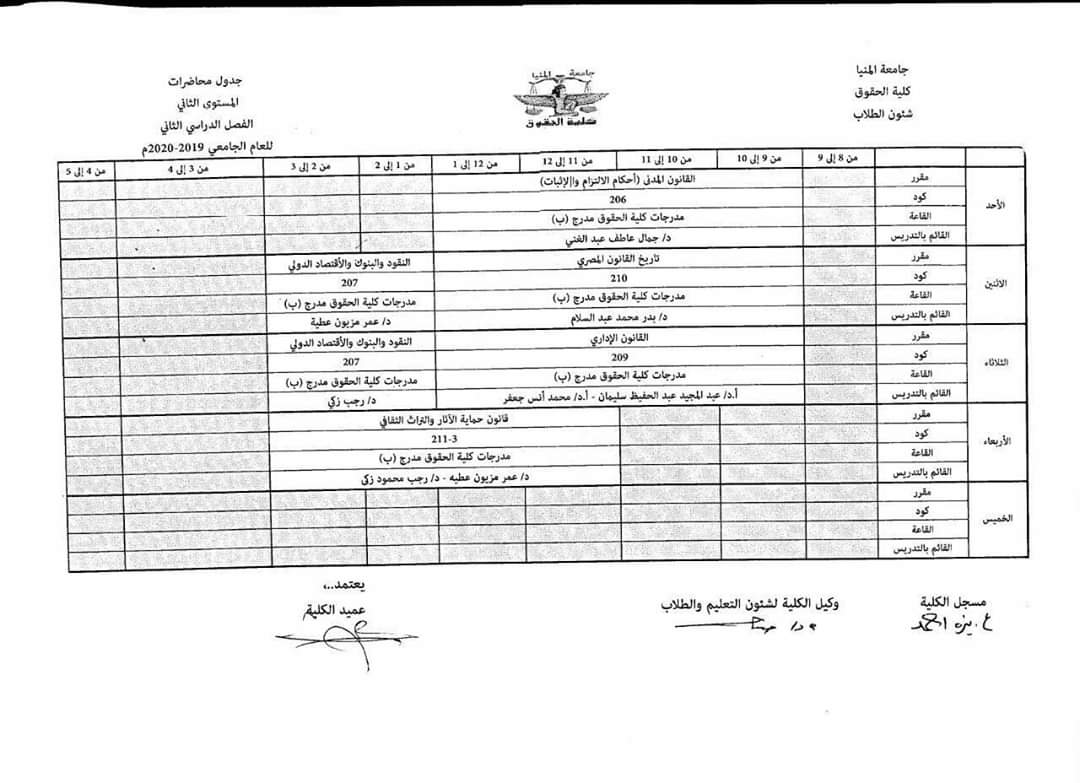 جامعة المنيا
كلية الحقوق
شئون الطلاب
جامعة المنيا
كلية الحقوق
جدول محاضرات
المستوى الثاني
الفصل الدراسي الثاني
للعام الجامعي 2019-2020م
من 8 إلى 9 من 9 إلى 10 من 10 إلى 11 من 11 إلى 12 من 12 إلى 1 من 1 إلى 2 من 2 إلى 3 من 3 إلى 4 من 4 إلى 5
الأحد
مقرر القانون المدني (أحكام الالتزام والإثبات)
كود 206
القاعة مدرجات كلية الحقوق مدرج (ب)
القائم بالتدريس د/ جمال عاطف عبد الغني
الاثنين
مقرر تاريخ القانون المصري النقود والبنوك والأقتصاد الدولي
كود 210 207
القاعة مدرجات كلية الحقوق مدرج (ب) مدرجات كلية الحقوق مدرج (ب)
القائم بالتدريس د/ بدر محمد عبد السلام د/ عمر مزيون عطية
الثلاثاء
مقرر القانون الإداري النقود والبنوك والأقتصاد الدولي
كود 209 207
القاعة مدرجات كلية الحقوق مدرج (ب) مدرجات كلية الحقوق مدرج (ب)
القائم بالتدريس أ.د/ عبد المجيد عبد الحفيظ سليمان - أ.د/ محمد أنس جعفر د/ رجب زكي
الأربعاء
مقرر قانون حماية الآثار والتراث الثقافي
كود 211-3
القاعة مدرجات كلية الحقوق مدرج (ب)
القائم بالتدريس د/ عمر مزيون عطيه - د/ رجب محمود زكي
الخميس
مقرر
كود
القاعة
القائم بالتدريس
مسجل الكلية
وكيل الكلية لشئون التعليم والطلاب
يعتمد..،
عميد الكلية